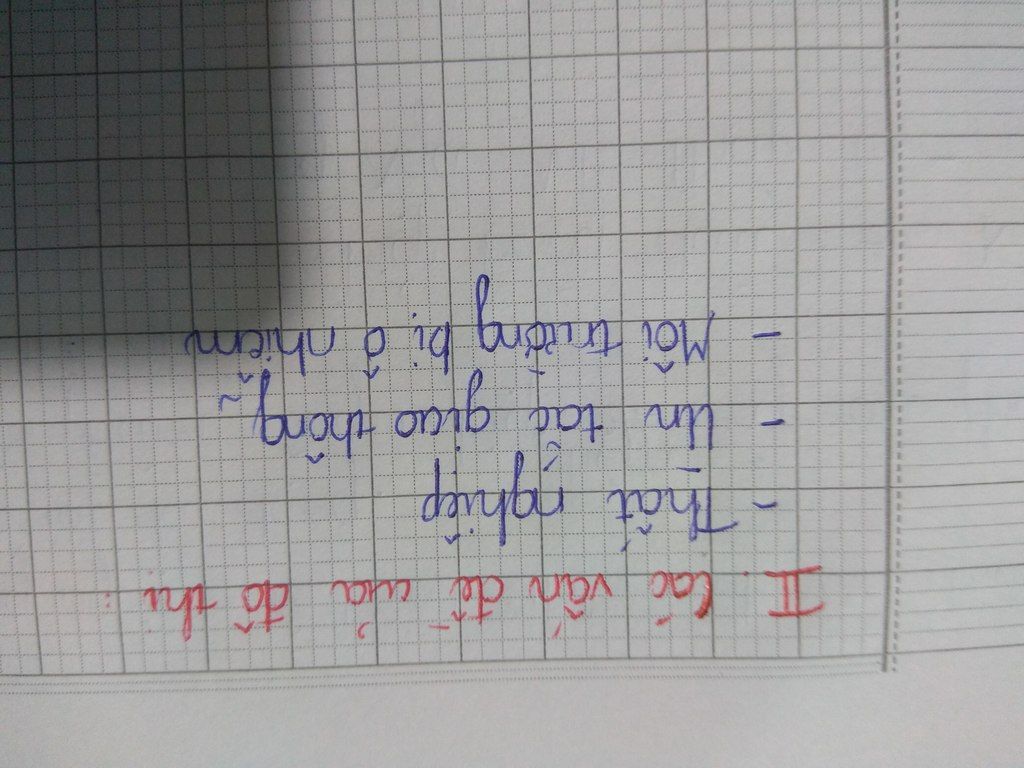 II. Các vấn đề của đô thị :
- Thất nghiệp
- Ùn tắc giao thông
- Môi trường bị ô nhiễm